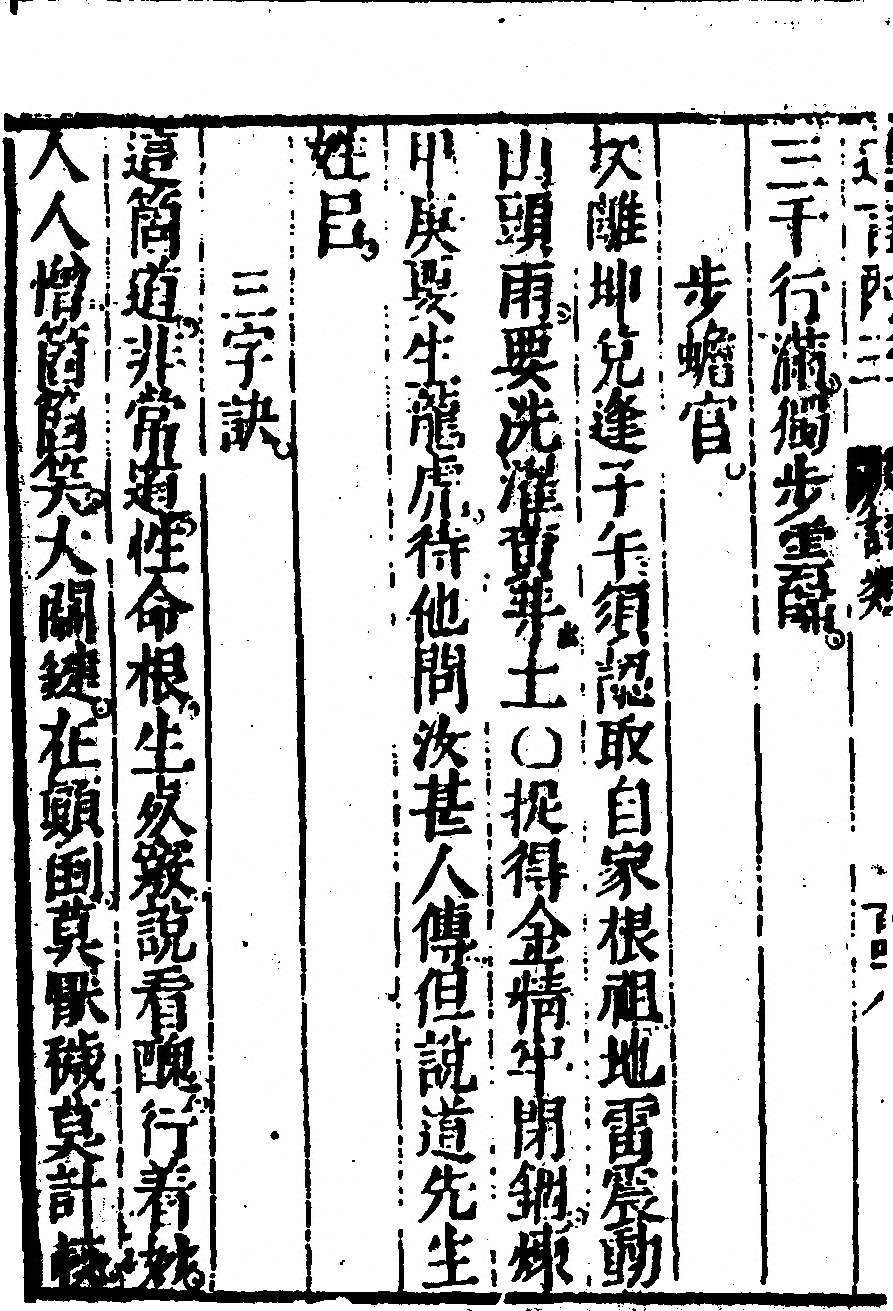 三千行滿獨步雲歸
步蟾宫
坎離坤兌逢子午須認取自家根祖地雷震動
山頭雨要洗濯黃芽出土〇捉得金精牢閉錮煉
甲庚要生龍虎待他問汝甚人傳但說道先生
姓吕
三字訣
這箇道非常道性命根生死竅說看醜行着妙
人人憎箇箇笑大關鍵在顛倒莫厭穢莫計較